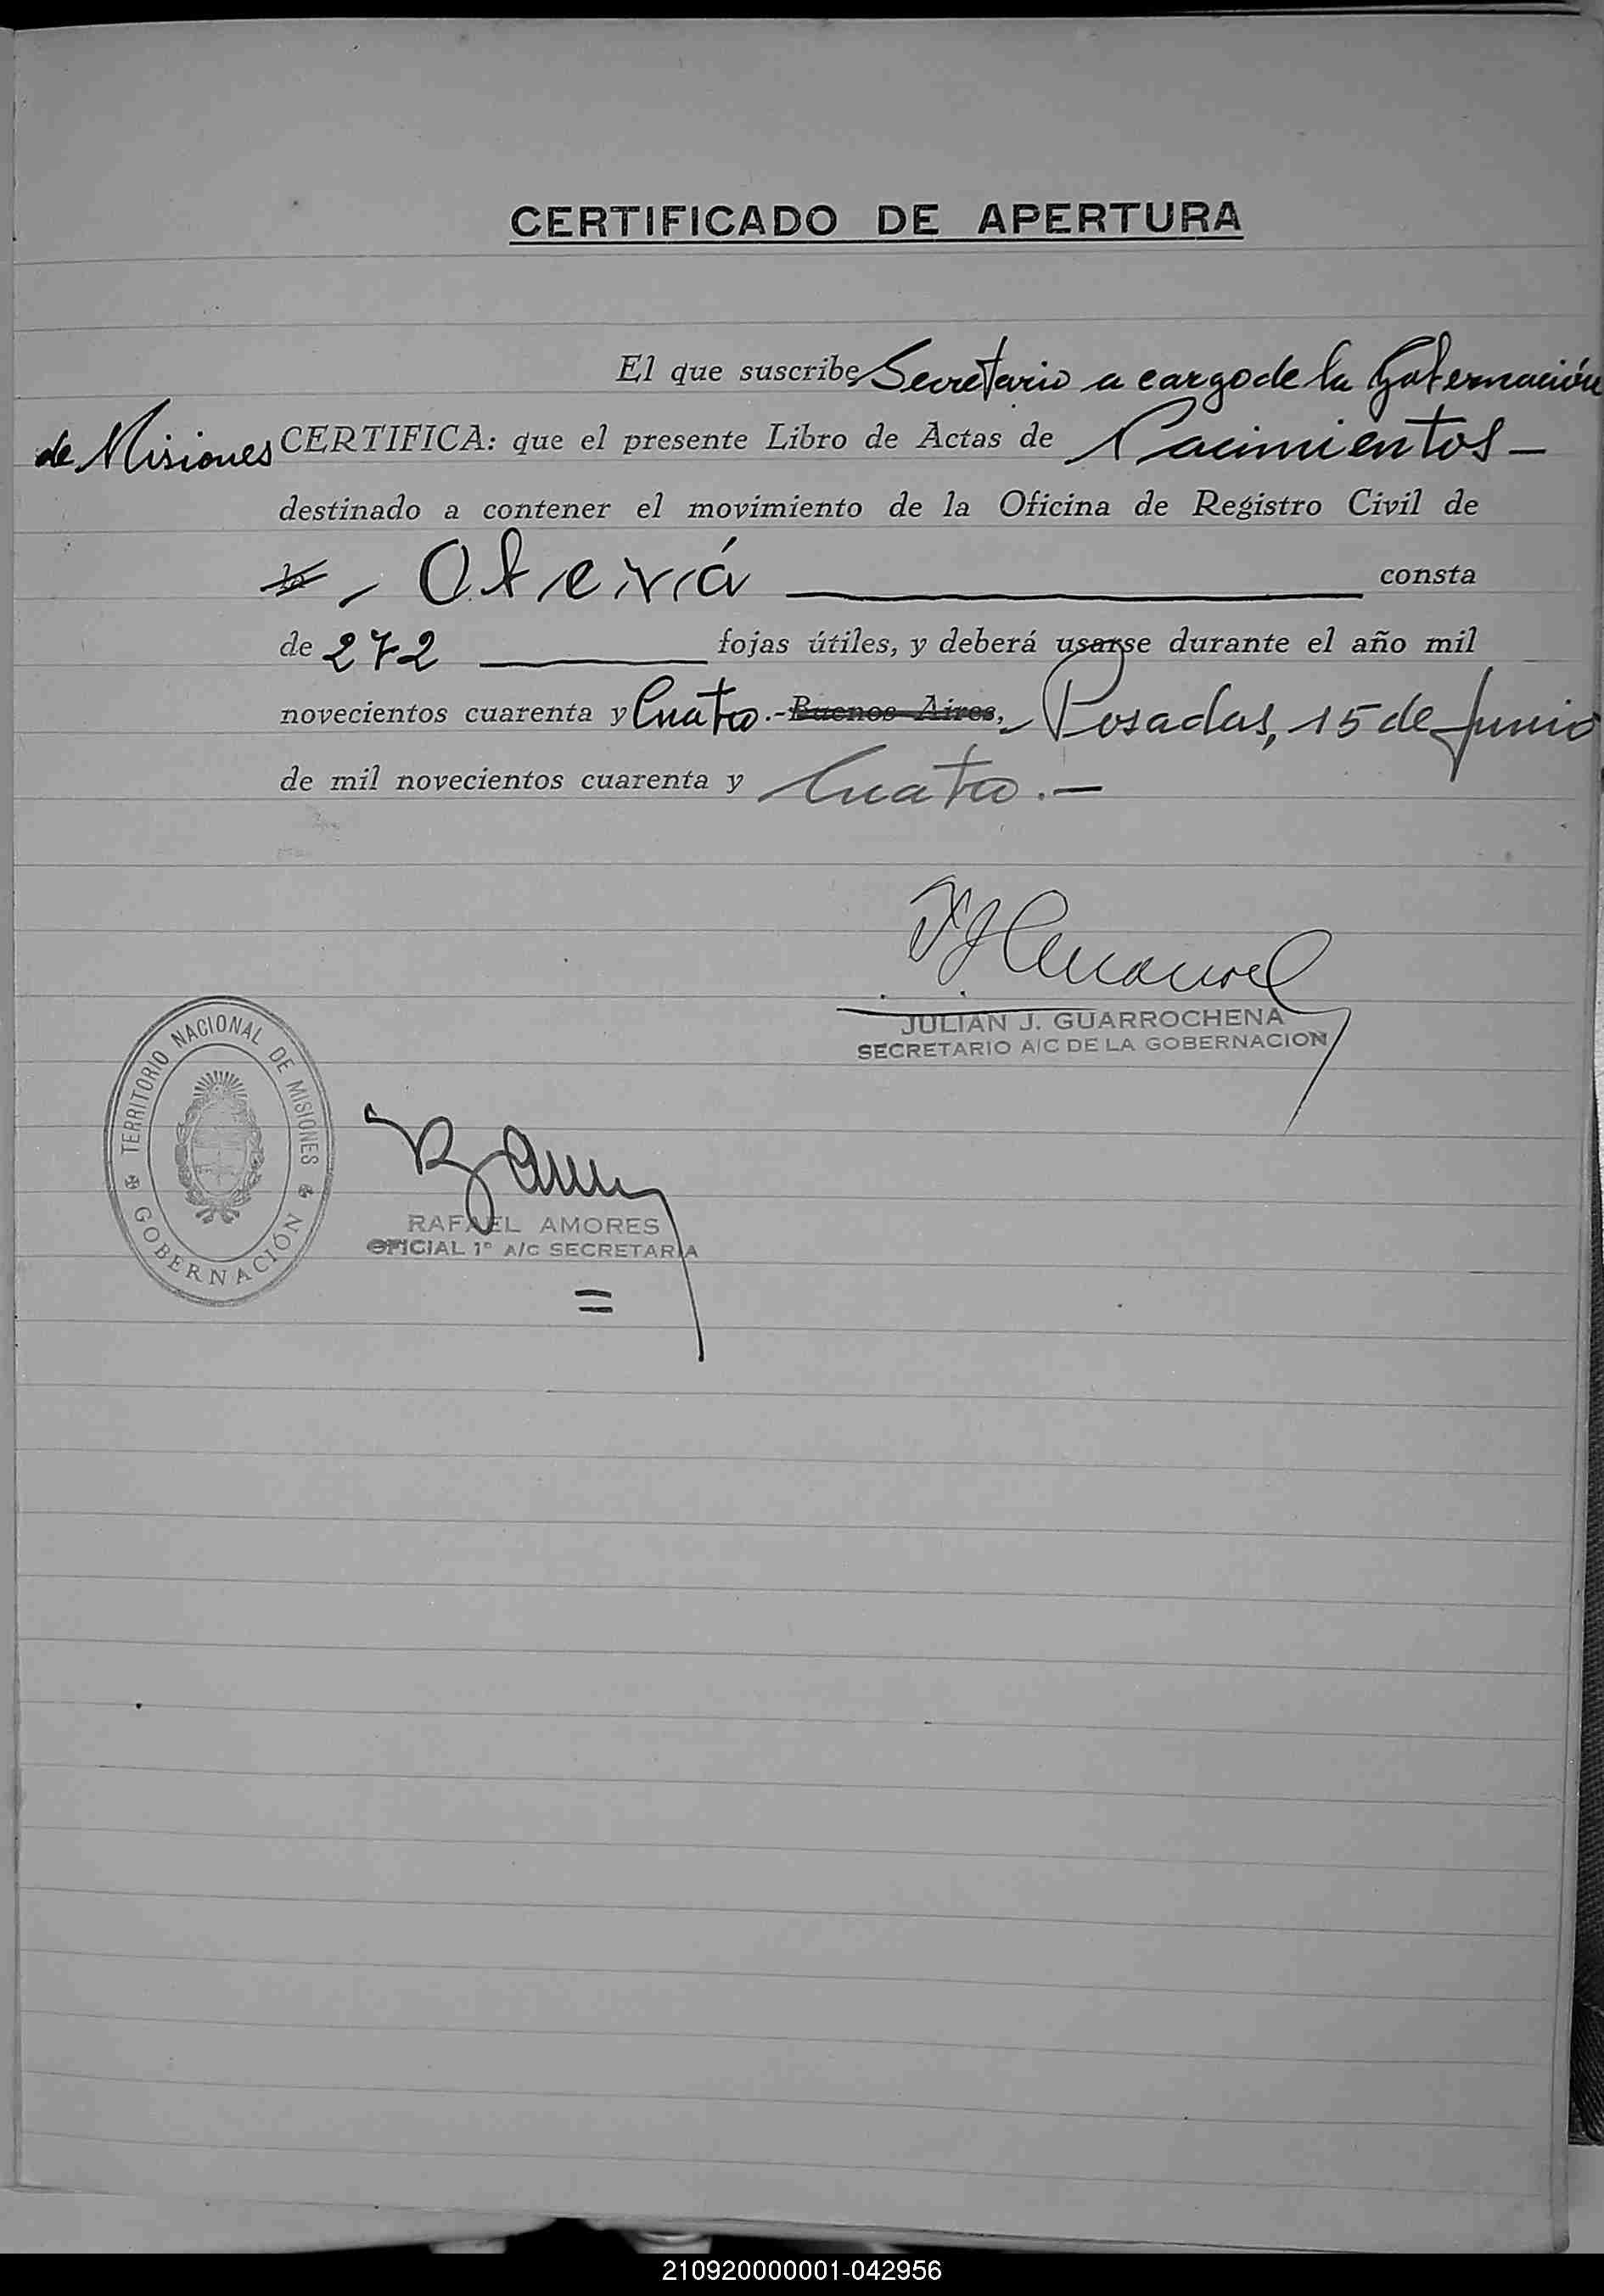 CERTIFICADO DE APERTURA
El que suscribe Secretario a cargo de la Gobernación
de Misiones CERTIFICA: que el presente Libro de Actas de Nacimientos —
destinado a contener el movimiento de la Oficina de Registro Civil de
Oberá consta
de 272 fojas útiles, y deberá usarse durante el año mil
novecientos cuarenta y Cuatro.- Buenos Aires, Posadas, 15 de Junio
de mil novecientos cuarenta y Cuatro.—
JULIAN J. GUARROCHENA
SECRETARIO A/C DE LA GOBERNACION
TERRITORIO NACIONAL DE MISIONES
GOBERNACIÓN
RAFAEL AMORES
OFICIAL 1º A/C SECRETARIA
210920000001-042956